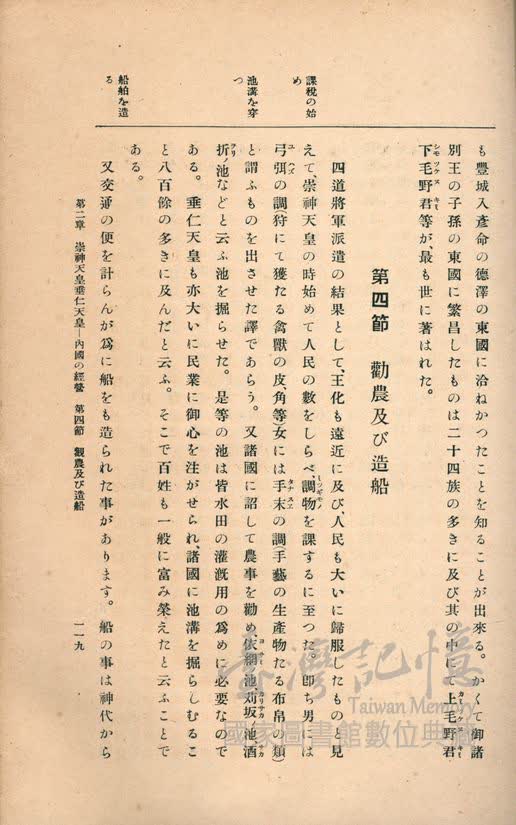 も豐城入彦命の德澤の東國に洽ねかつたことを知ることが出來る。かくて御諸
別王の子孫の東國に繁昌したものは二十四族の多きに及び、其の中にて上毛野君
下毛野君等が、最も世に著はれた。
第四節 勸農及び造船
四道將軍派遣の結果として、王化も遠近に及び、人民も大いに歸服したものと見
えて、崇神天皇の時始めて人民の數をしらべ、調物を課するに至つた。卽ち男には
弓弭の調(狩にて獲たる禽獸の皮、角等)女には手末の調(手藝の生產物たる布帛の類)
と謂ふものを出させた譯であらう。又諸國に詔して農事を勸め、依網ノ池、苅坂ノ池、酒
折ノ池などと云ふ池を掘らせた。是等の池は皆水田の灌漑用の爲めに必要なので
ある。垂仁天皇も亦大いに民業に御心を注がせられ、諸國に池溝を掘らしむるこ
と八百餘の多きに及んだと云ふ。そこで百姓も一般に富み榮えたと云ふことで
ある。
又交通の便を計らんが爲に船をも造られた事があります。船の事は神代から
課稅の始
め
池溝を穿
つ
船舶を造
る
第二章 崇神天皇垂仁天皇—內國の經營 第四節 觀農及び造船
一一九
臺灣記憶
Taiwan Memory
國家圖書館數位典藏